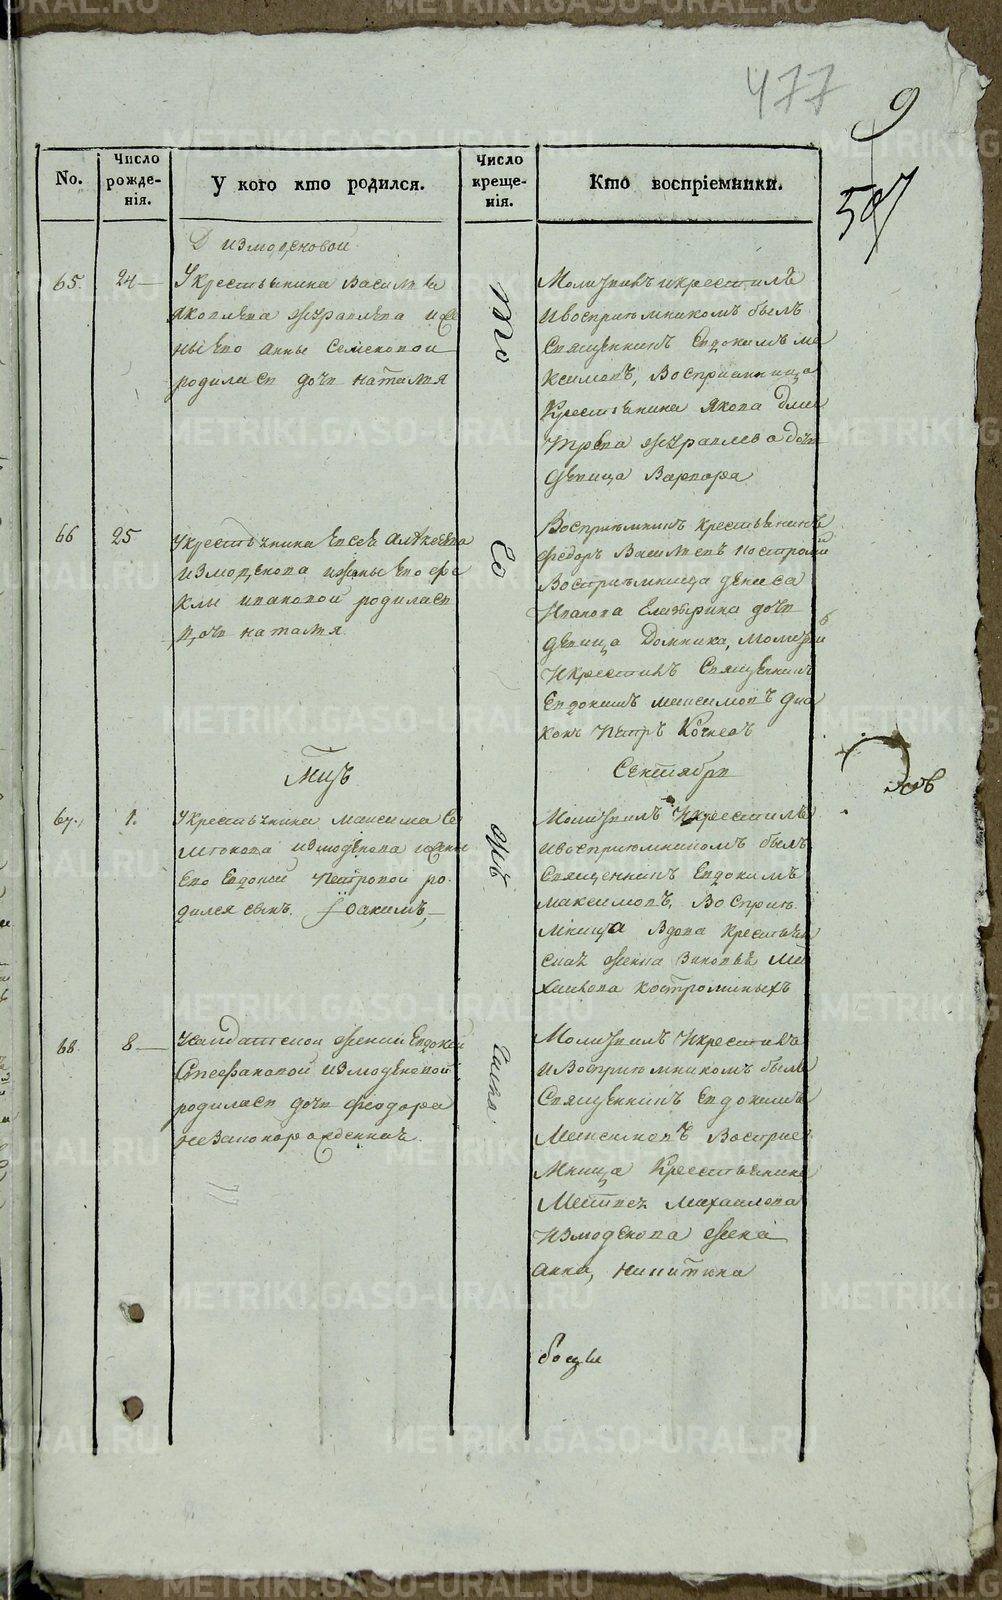 477
9
507
No.
Число рожде-нія.
У кого кто родился.
Число креще-нія.
Кто воспріемники.
Д измоденовой
65.
24
У крестьянина Василья
яковлева журавлева и же
ны его анны Семеновой
родилась дочь наталья
то
Молитвилъ и крестилъ
и воспріемникомъ былъ
Священникъ Евдокимъ ма
ксимовъ, Воспріемница
Крестьянина Якова Дми
трева журавлева дочь
девица Варвара
66
25
У крестьянина Евсея алѣксѣева
измоденова и жены его фе
клы ивановой родилась
дочь наталья
Воспріемникъ крестьянинъ
Федоръ Васильевъ костромин
Воспріемница дениса
Иванова дочь
девица Домника, молитвилъ
И крестилъ Священникъ
Евдокимъ максимовъ диа
конъ Петръ Кочневъ
Мцъ
Сентября
67.
1.
У крестьянина максима Се
измоденова и жены
его Евдокіи Петровой ро
дился сынъ Іоакимъ,
Молитвилъ И крестилъ
и воспріемникомъ былъ
Священникъ Евдокимъ
максимовъ, Воспріе
мница Вдова крестьян
ская жена Зиновья Ми
хаилова костроминыхъ
68.
8
У салдатской женки Евдокіи
Стефановой измоденовой
родилась дочь феодора
незаконорожденная.
Молитвилъ И крестилъ
И Воспріемникомъ былъ
Священникъ Евдокимъ
Максимовъ Воспріе
мница Крестьянина
Матвея Михаилова
Измоденова жена
анна, никитина